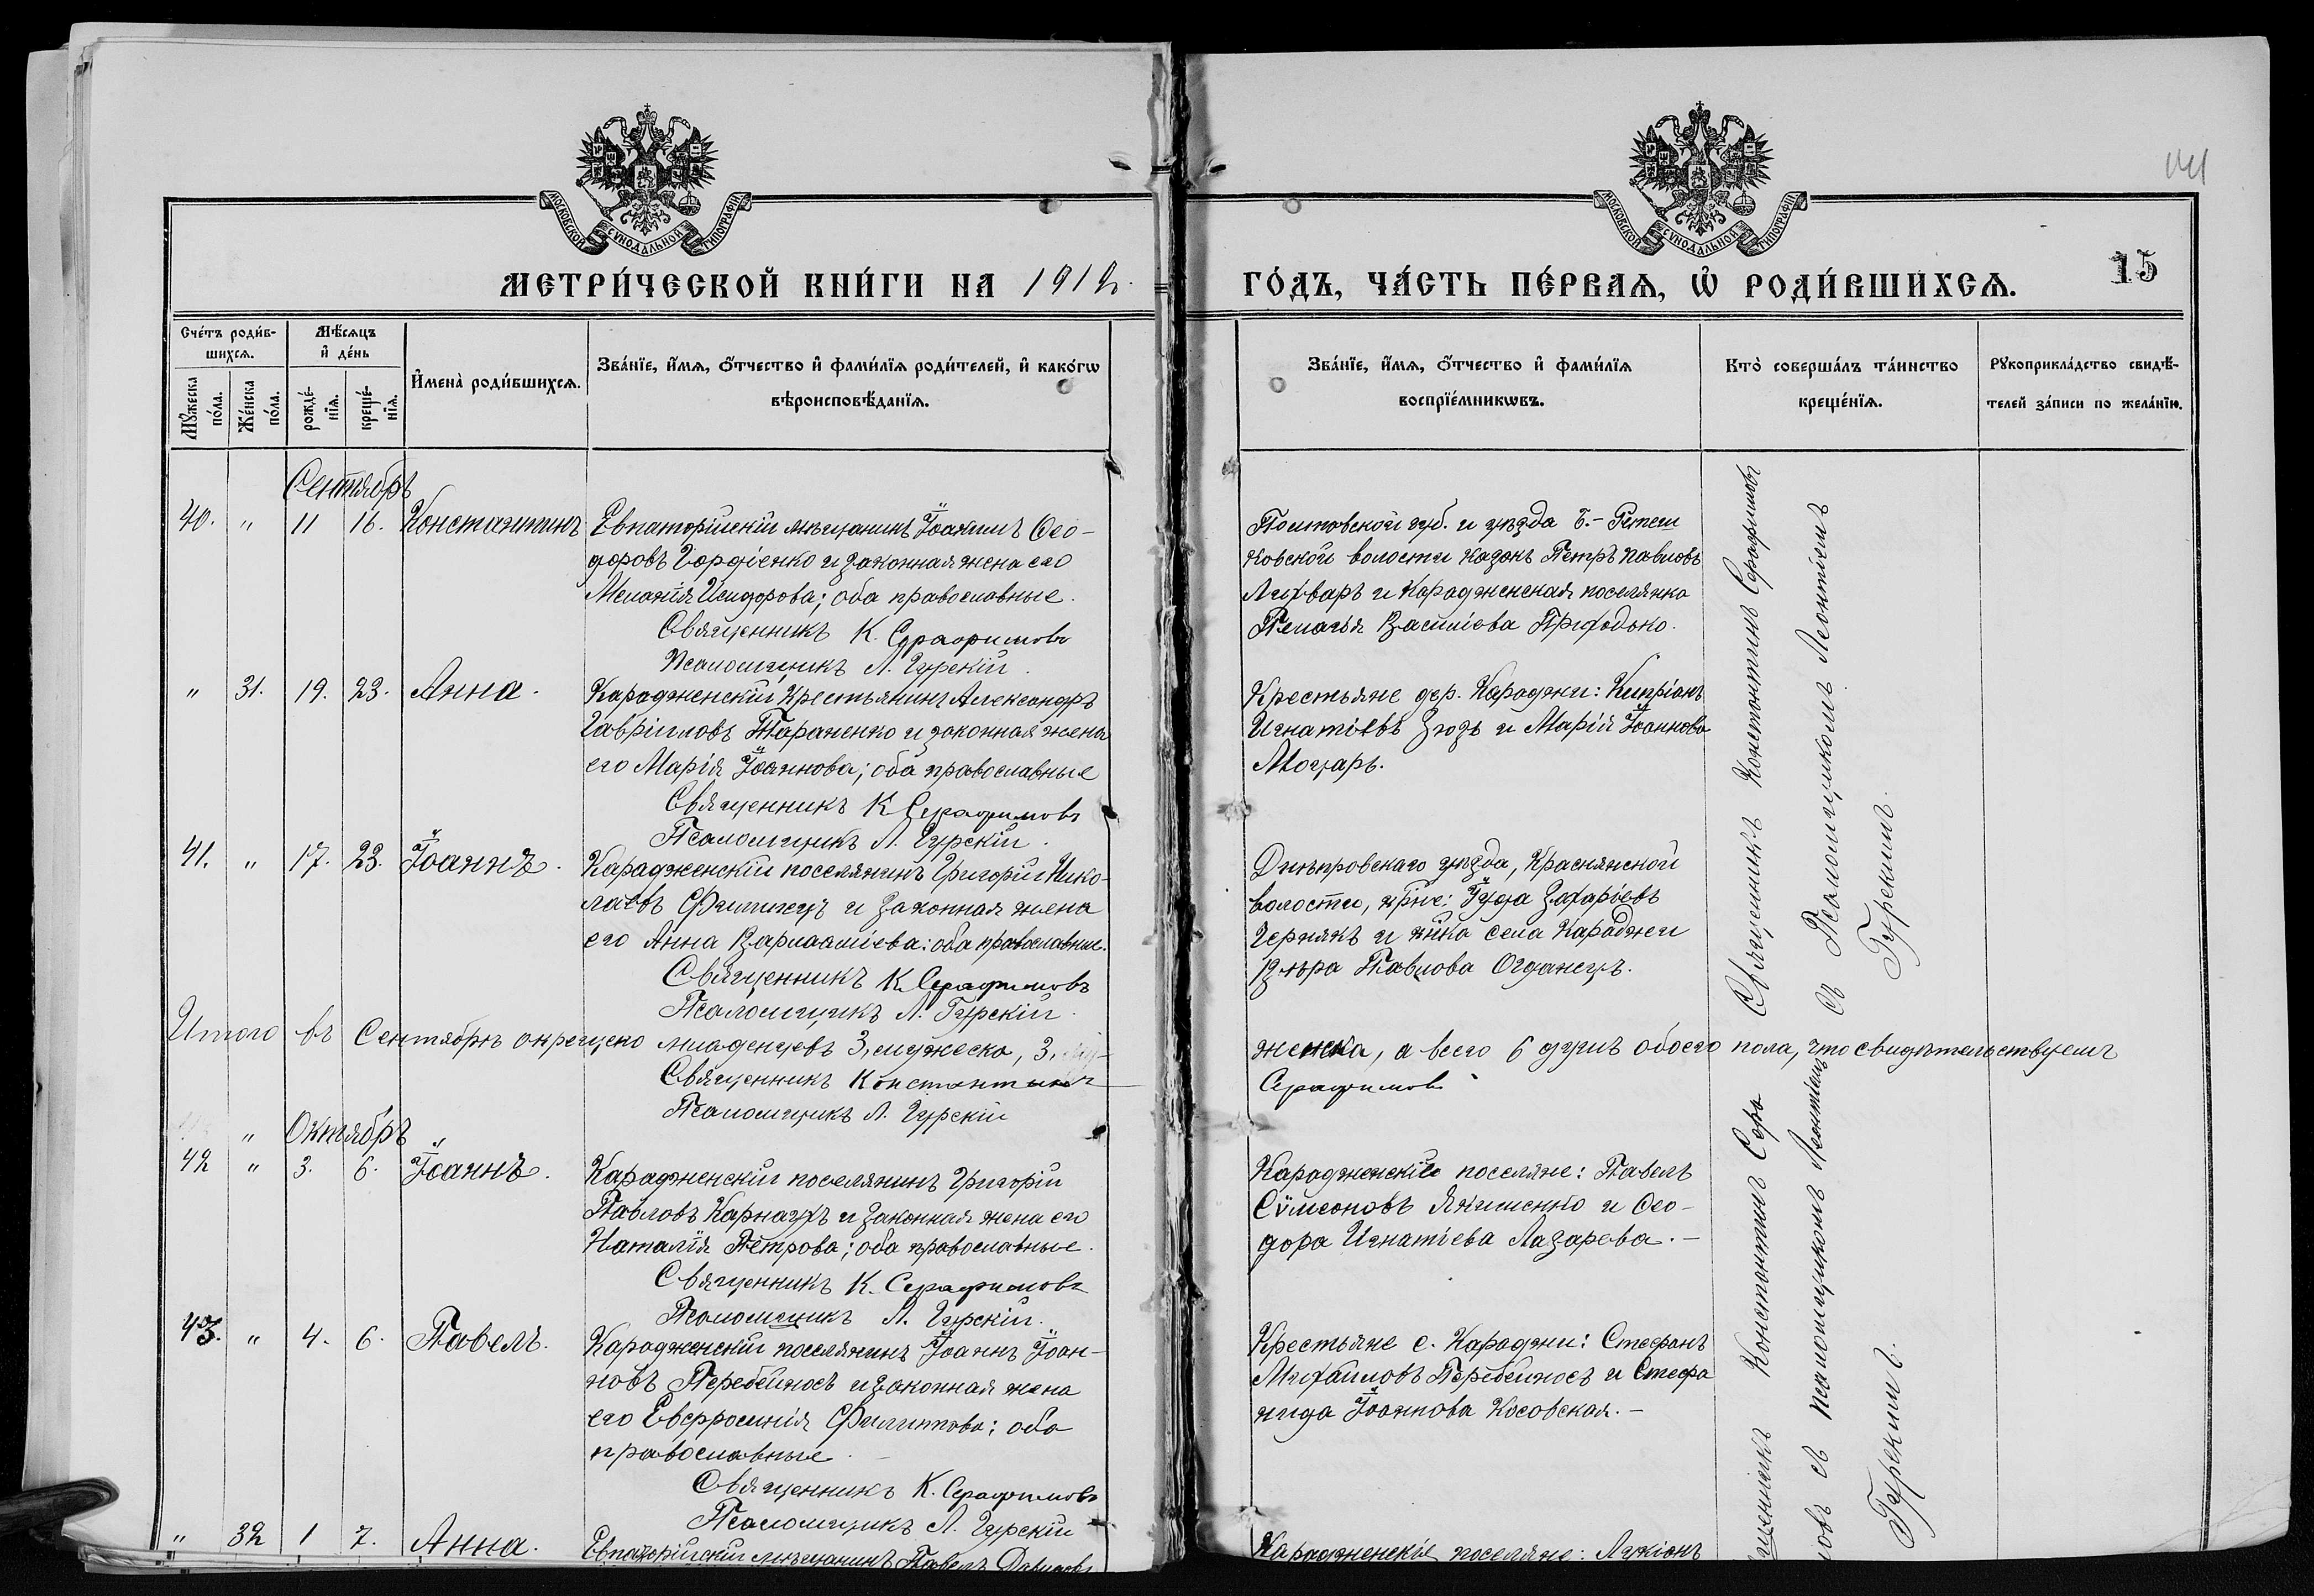 МОСКОВСКОЙ СѴНОДАЛЬНОЙ ТИПОГРАФІИ
МОСКОВСКОЙ СѴНОДАЛЬНОЙ ТИПОГРАФІИ
141
МЕТРИ́ЧЕСКОЙ КНИ́ГИ НА 1912.
ГО́ДЪ, ЧА́СТЬ ПЕ́РВАѦ, Ѡ҆ РОДИ́ВШИХСѦ.
15
Сче́тъ роди́в-
шихсѧ.
Мꙋ́жеска по́ла.
Же́нска по́ла.
Мѣ́сѧцъ
и҆ де́нь
рожде́-
нїѧ.
креще́-
нїѧ.
И҆мена̀ роди́вшихсѧ.
Зва́нїе, и҆́мѧ, ѻ҆́тчество и҆ фами́лїѧ роди́телей, и҆ како́гѡ
вѣроисповѣ́данїѧ.
Зва́нїе, и҆́мѧ, ѻ҆́тчество и҆ фами́лїѧ
воспрїе́мникѡвъ.
Кто̀ соверша́лъ та́инство
креще́нїѧ.
Рꙋкоприкла́дство свидѣ́-
телей за́писи по жела́нїю.
Сентябрь
40. " 11 16. Константинъ
Евпаторійскій мѣщанинъ Іоакимъ Ѳео-
доровъ Гордіенко и законная жена его
Меланія Исидорова; оба православные.
Священникъ К. Серафимовъ
Псаломщикъ Л. Гурскій.
Полтовской губ. и уѣзда
ковской волости казакъ Петръ Павловъ
Лихваръ и Караджанская поселянка
Пелагья Василіева Приходько.
" 31. 19. 23. Анна.
Караджинскій крестьянинъ Александръ
Гавріиловъ Тараненко и законная жена
его Марія Іоаннова; оба православные
Священникъ К Серафимовъ
Псаломщикъ Л. Гурскій.
Крестьяне дер. Караджи: Кипріанъ
Игнатіевъ Зюзь и Марія Іоаннова
Моцарь.
41. " 17. 23. Іоаннъ.
Караджинскій поселянинъ Григорій Нико-
лаевъ Филипецъ и законная жена
его Анна Варлааміева; оба православные.
Священникъ К. Серафимовъ
Псаломщикъ Л. Гурскій.
Днѣпровскаго уѣзда, Краснянской
волости, крне: Іуда Захаріевъ
Чернякъ и села Караджи
Вѣра Павлова Огданецъ.
Священникъ Константинъ Серафимовъ
съ Псаломщикомъ Леонтіемъ
Гурскимъ.
Итого въ Сентябрѣ окрещено младенцевъ 3, мужеска, 3,
женска, а всего 6 душъ обоего пола, что свидѣтельствуемъ
Священникъ Константинъ
Серафимовъ
Псаломщикъ Л. Гурскій
" Октябрь
42 " 3. 6. Іоаннъ.
Караджинскій поселянинъ Григорій
Павловъ Карнаухъ и законная жена его
Наталія Петрова; оба православные.
Священникъ К. Серафимовъ
Псаломщикъ Л. Гурскій.
Караджинскіе поселяне: Павелъ
Сѵмеоновъ Якименко и Ѳео-
дора Игнатіева Лазарева.-
43. " 4. 6. Павелъ.
Караджинскій поселянинъ Іоаннъ Іоан-
новъ Перебейносъ и законная жена
его Евфросинія Филиппова; оба
православные.
Священникъ К. Серафимовъ
Псаломщикъ Л. Гурскій
Крестьяне с. Караджи: Стефанъ
Михаиловъ Перебейносъ и Стефа
нида Іоаннова Косовская.-
щенникъ Константинъ Сера
мовъ съ псаломщикомъ Леонтіемъ
Гурскимъ.
" 32 1 7. Анна.
Евпаторійскій мѣщанинъ Павелъ Давидовъ
Караджинскіе поселяне: Лукіанъ